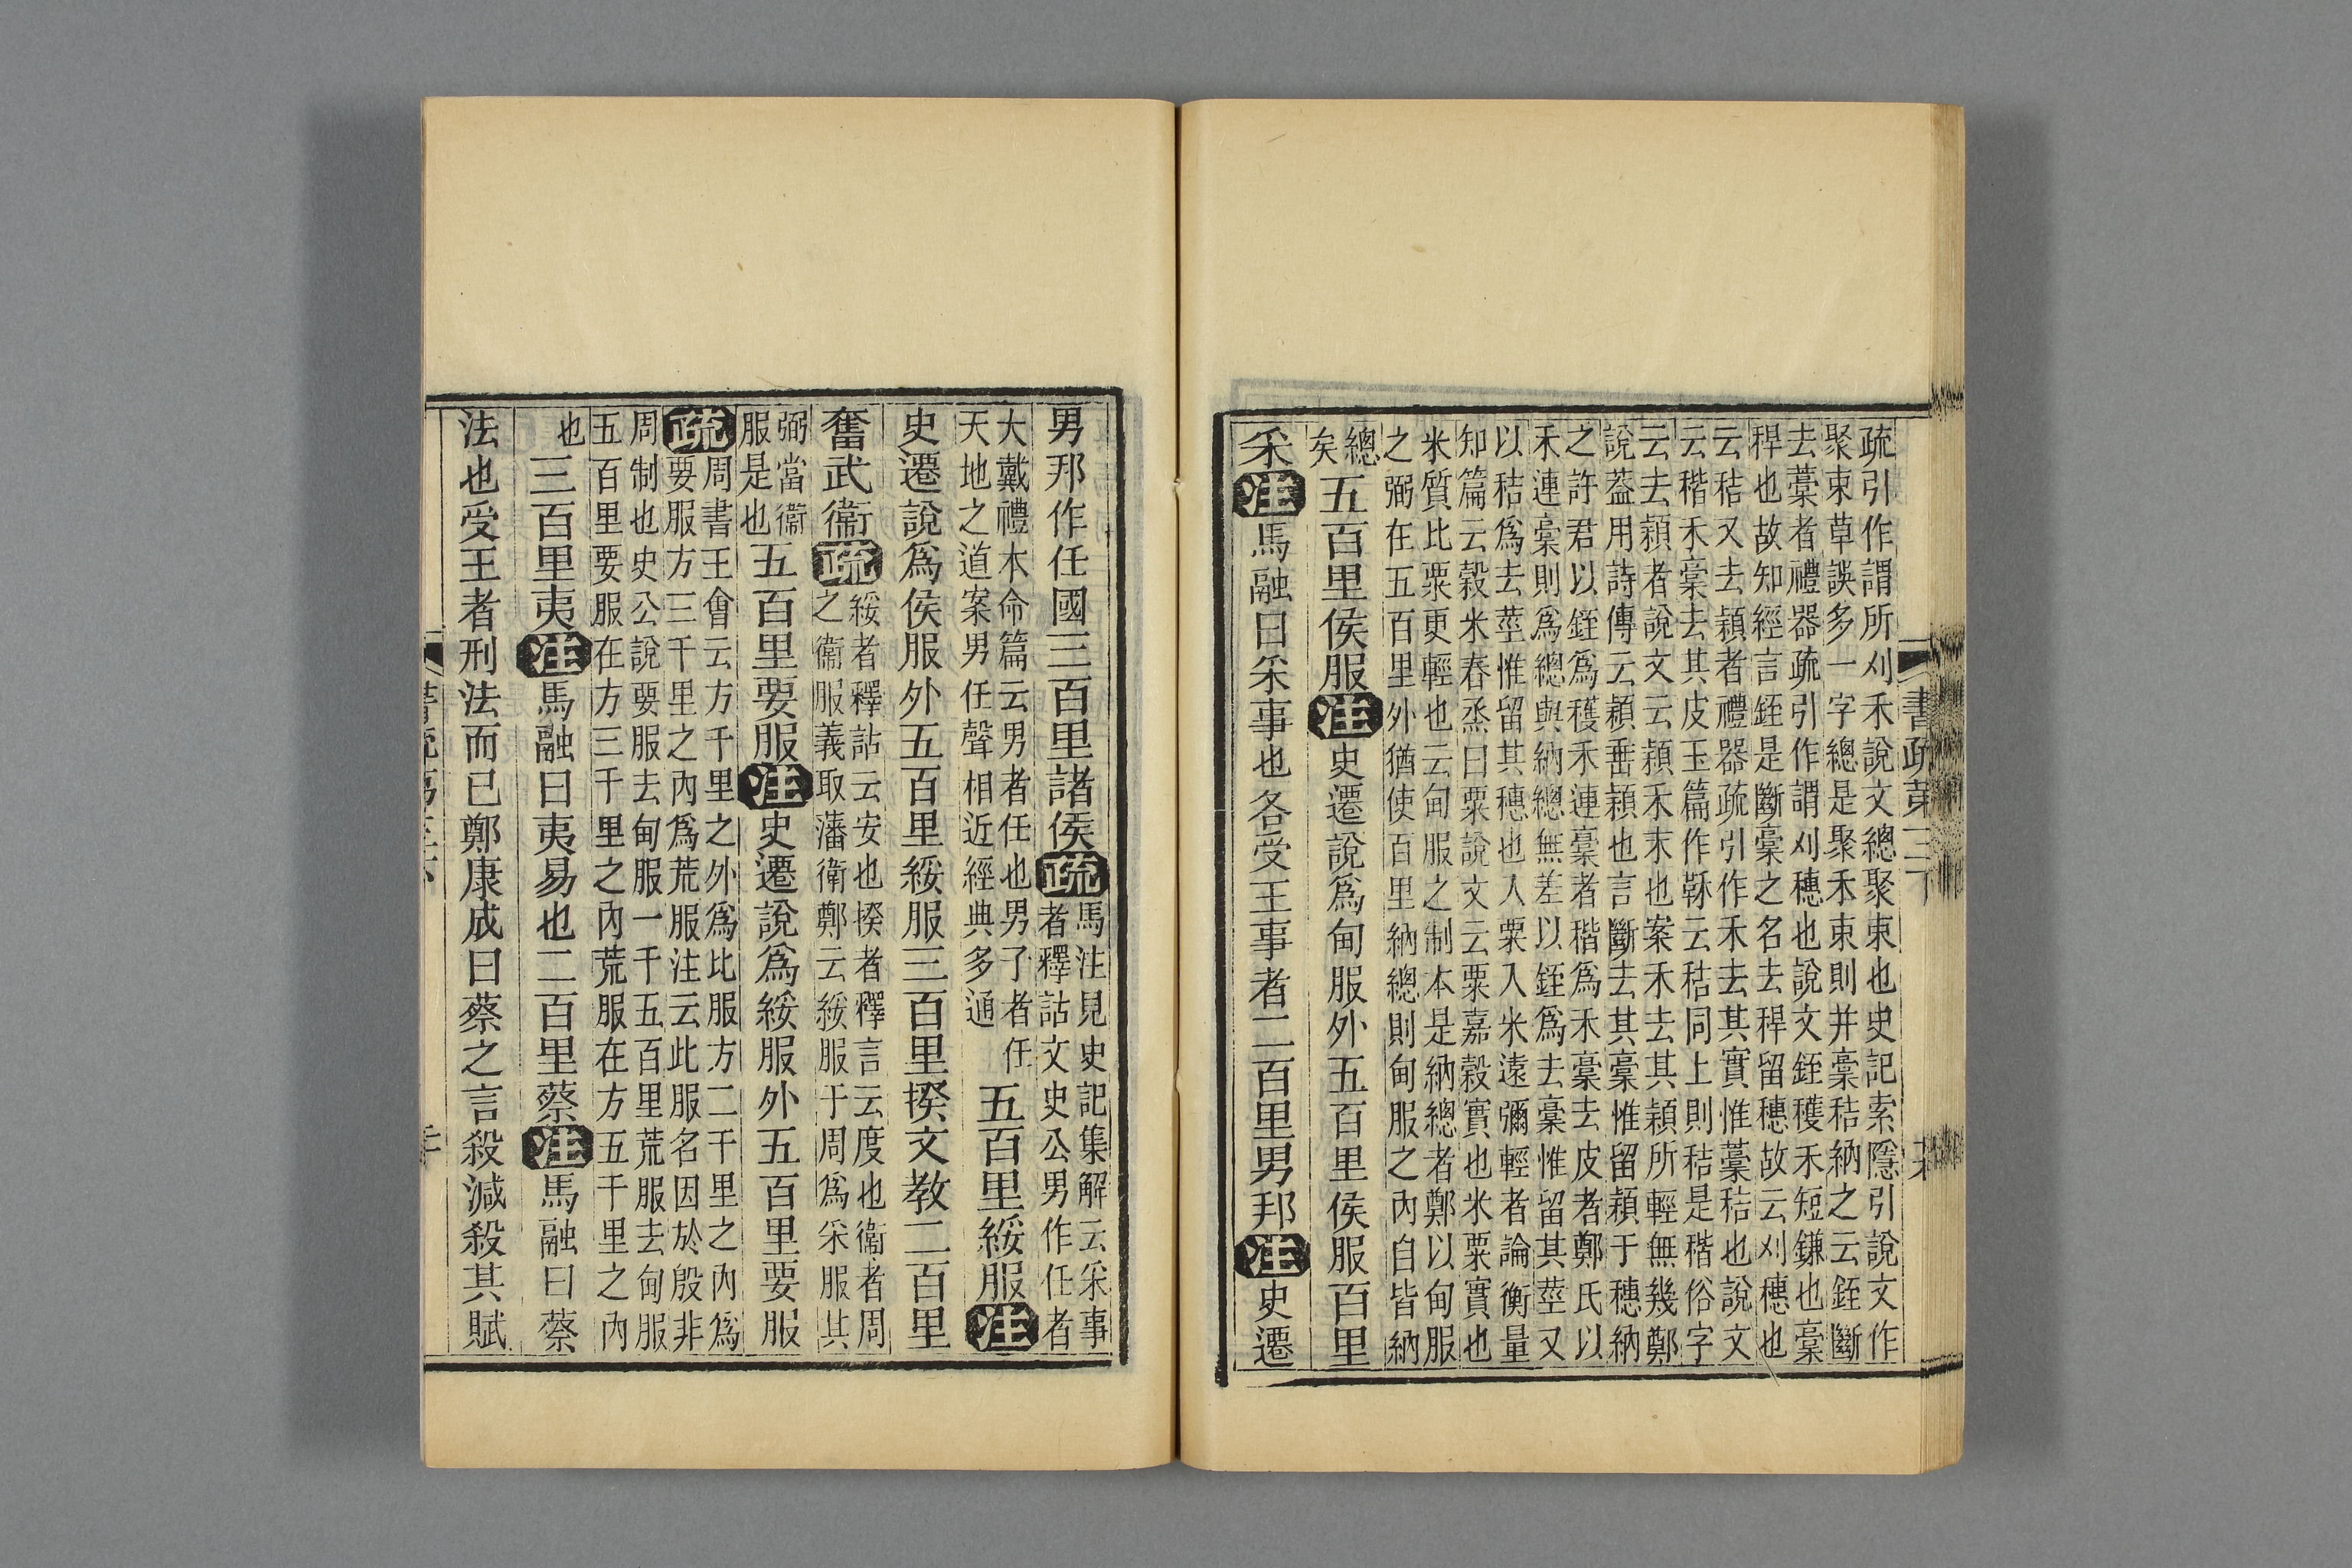 疏引作謂所刈禾說文總聚束也史記索隱引說文作
聚束草誤多一字總是聚禾束則并稾秸納之云銍斷
去藁者禮器疏引作謂刈穗也說文銍穫禾短鎌也稾
稈也故知經言銍是斷稾之名去稈留穗故云刈穗也
云秸又去穎者禮器疏引作禾去其實惟藁秸也說文
云稭禾稾去其皮玉篇作云秸同上則秸是稭俗字
云去穎者說文云穎禾末也案禾去其穎所輕無幾鄭
說葢用詩傳云穎垂穎也言斷去其稾惟留穎于穗納
之許君以銍爲穫禾連稾者稭爲禾稾去皮者鄭氏以
禾連稾則爲總與納總無差以銍爲去稾惟留其莖又
以秸爲去莖惟留其穗也入粟入米遠彌輕者論衡量
知篇云穀米舂烝曰粟說文云粟嘉穀實也米粟實也
米質比粟更輕也云甸服之制本是納總者鄭以甸服
之弼在五百里外猶使百里納總則甸服之內自皆納
總
矣
五百里侯服注史遷說爲甸服外五百里侯服百里
采注馬融曰采事也各受王事者二百里男邦注史遷
男邦作任國三百里諸侯疏
馬注見史記集解云采事
者釋詁文史公男作任者
大戴禮本命篇云男者任也男子者任
天地之道案男任聲相近經典多通
五百里綏服注
史遷說爲侯服外五百里綏服三百里揆文教二百里
奮武衞疏
綏者釋詁云安也揆者釋言云度也衞者周
之衞服義取藩衛鄭云綏服于周爲采服其
弼當衞
服是也
五百里要服注史遷說爲綏服外五百里要服
疏
周書王會云方千里之外爲比服方二千里之內爲
要服方三千里之內爲荒服注云此服名因於殷非
周制也史公說要服去甸服一千五百里荒服去甸服
五百里要服在方三千里之內荒服在方五千里之內
也
三百里夷注馬融曰夷易也二百里蔡注馬融曰蔡
法也受王者刑法而已鄭康成曰蔡之言殺減殺其賦